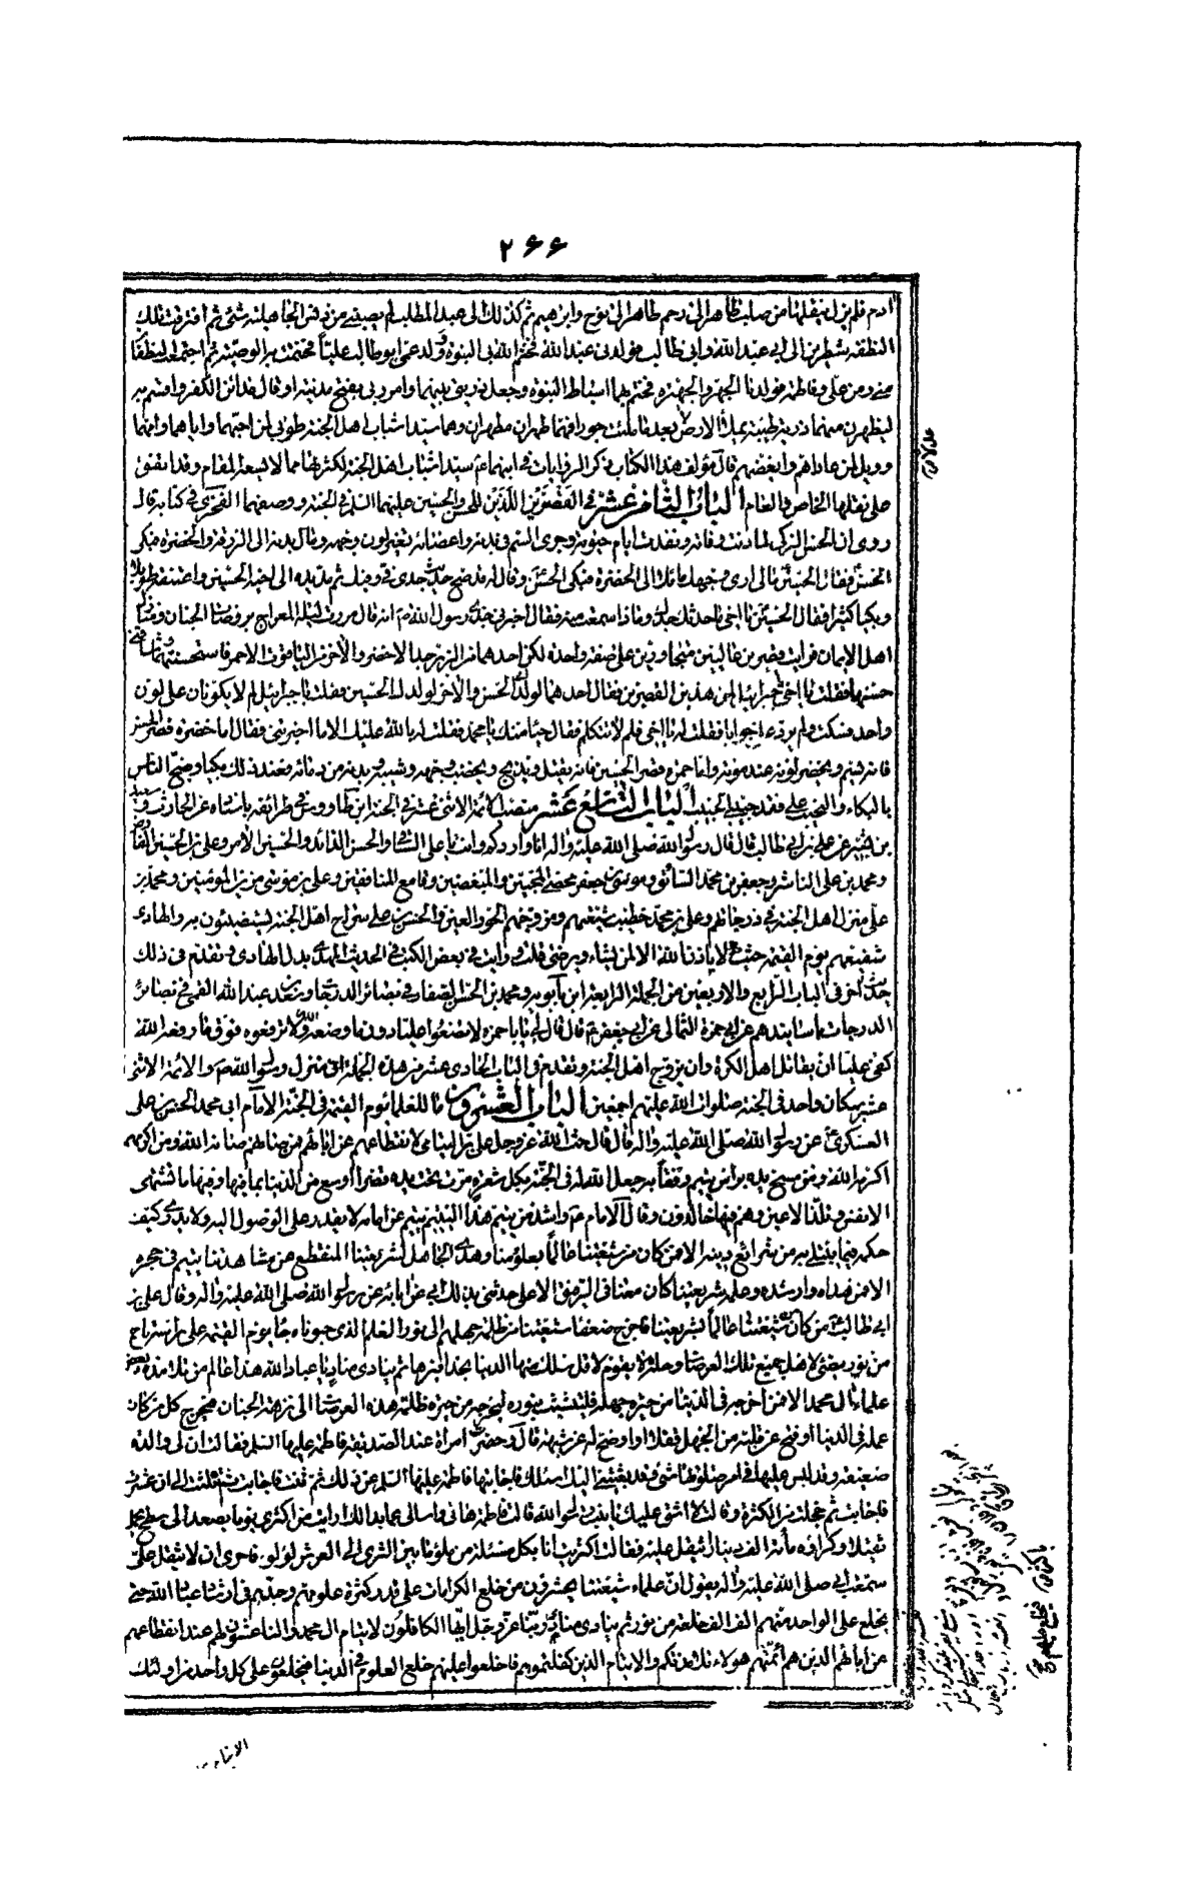 ٢٦٦
ادم فلم يزل ينقلها من صلب طاهر الى رحم طاهر الى نوح وابراهيم ثم كذلك الى عبد المطلب لم يصبني من دنس الجاهلية شئ ثم افترقت تلك
النطفة شطرين الى ابي عبد الله وابي طالب فولدني عبد الله فختم الله بي النبوة وولد عمي ابو طالب عليا فختمت به الوصية ثم اجتمعت النطفتا
مني ومن علي وفاطمة فولدنا الجهر والجهرة فختم بهما اسباط النبوة وجعل ذريتي منهما وامرني بفتح مدينة او قال مدائن الكفر واقسم به
ليظهرن منهما ذرية طيبة يملأ الارض عدلا بعد ما ملئت جورا فهما طهران مطهران وهما سيدا شباب اهل الجنة طوبى لمن احبهما واباهما وامهما
وويل لمن عاداهم وابغضهم قال مؤلف هذا الكتاب ذكر الروايات في انهما سيدا شباب اهل الجنة لكثرتها مما لا يسعه المقام وقد اتفق
على نقلها الخاص والعام الباب الثامن عشر في القصرين اللذين للحسن والحسين عليهما السلم في الجنة ووصفهما الفخري في كتابه قال
روى ان الحسن الزكي لما دنت وفاته ونفدت ايام حيوته وجرى السم في بدنه واعضائه تغير لون وجهه ومال بدنه الى الزرقة والخضرة فبكى
الحسن فقال الحسين مالي ارى وجهك مائلا الى الخضرة فبكى الحسن وقال له قد صح حديث جدي في وفيك ثم مد يده الى اخيه الحسين واعتنقه طويلا
وبكيا كثيرا فقال الحسين يا اخي ما حدثك جدك وماذا سمعت منه فقال اخبرني جدي رسول الله ص انه قال مررت ليلة المعراج بروضات الجنان ومنازل
اهل الايمان فرايت قصرين عاليين متجاورين على صفة واحدة لكن احدهما من الزبرجد الاخضر والاخر من الياقوت الاحمر فاستحسنتهما وشاقني
حسنهما فقلت يا اخي جبرائيل لمن هذين القصرين فقال احدهما لولدك الحسن والاخر لولدك الحسين فقلت يا جبرائيل لم لا يكونان على لون
واحد فسكت ولم يرد علي جوابا فقلت له يا اخي فلم لا تتكلم فقال حياء منك يا محمد فقلت له بالله عليك الا ما اخبرتني فقال اما خضرة قصر الحسن
فانه يسم ويخضر لونه عند موته واما حمرة قصر الحسين فانه يقتل ويذبح ويخضب وجهه وشيبه وبدنه من دمائه فعند ذلك بكيا وضج الناس
بالبكاء والنحيب على فقد حبيبي الحبيب الباب التاسع عشر منصب الائمة الاثني عشر في الجنة ابن طاووس في طرائفه باسناده عن الحارث وسعيد
بن بشير عن علي بن ابي طالب قال قال رسول الله صلى الله عليه واله انا واردكم وانت يا علي الساقي والحسن الذائد والحسين الامر وعلي بن الحسين الفارض
ومحمد بن علي الناشر وجعفر بن محمد السائق وموسى بن جعفر محصي المحبين والمبغضين وقامع المنافقين وعلي بن موسى مزين المؤمنين ومحمد بن
علي منزل اهل الجنة في درجاتهم وعلي بن محمد خطيب شيعتهم ومزوجهم الحور العين والحسن بن علي سراج اهل الجنة يستضيئون به والهادي
شفيعهم يوم القيمة حيث لا ياذن الله الا لمن يشاء ويرضى قلت ورايت في بعض الكتب في الحديث المهدي بدل الهادي وتقدم في ذلك
حديث اخر في الباب الرابع والاربعين من الجملة الرابعة ابن بابويه ومحمد بن الحسن الصفار في بصائر الدرجات وسعد بن عبد الله القمي في بصائر
الدرجات باسانيدهم عن ابي حمزة الثمالي عن ابي جعفر ع قال قال لي يا با حمزة لا تضعوا عليا دون ما وضعه الله ولا ترفعوه فوق ما رفعه الله
كفى عليا ان يقاتل اهل الكرة وان يزوج اهل الجنة وتقدم في الباب الحادي عشر من هذه الجملة ان منزل رسول الله ص والائمة الاثنى
عشر مكان واحد في الجنة صلوات الله عليهم اجمعين الباب العشرون ما للعلماء يوم القيمة في الجنة الامام ابي محمد الحسن بن علي
العسكري ع عن رسول الله صلى الله عليه واله قال قال حث الله عز وجل على بر اليتامى لانقطاعهم عن ابائهم فمن صانهم صانه الله ومن اكرمهم
اكرمه الله ومن مسح يده براس يتيم رفقا به جعل الله له في الجنة بكل شعرة مرت تحت يده قصرا اوسع من الدنيا بما فيها وفيها ما تشتهى
الانفس وتلذ الاعين وهم فيها خالدون وقال الامام ع واشد من يتم هذا اليتيم يتيم عن امامه لا يقدر على الوصول اليه ولا يدري كيف
حكمه فيما يبتلي به من شرائع دينه الا فمن كان من شيعتنا عالما بعلومنا وهدى الجاهل بشريعتنا المنقطع عن مشاهدتنا يتيم في حجره
الا فمن هداه وارشده وعلمه شريعتنا كان معنا في الرفيق الاعلى حدثني بذلك ابي عن ابائه عن رسول الله صلى الله عليه واله وقال علي بن
ابي طالب ع من كان من شيعتنا عالما بشريعتنا فاخرج ضعفاء شيعتنا من ظلمة جهلهم الى نور العلم الذي حبوناه جاء يوم القيمة على راسه تاج
من نور يضئ لاهل جميع تلك العرصات وحلة لا يقوم لاقل سلك منها الدنيا بحذافيرها ثم ينادي مناد يا عباد الله هذا عالم من تلامذة بعض
علماء ال محمد الا فمن اخرجه في الدنيا من حيرة جهله فليتشبث بنوره ليخرجه من حيرة ظلمة هذه العرصات الى نزهة الجنان فيخرج كل من كان
علمه في الدنيا او فتح عن قلبه من الجهل قفلا او اوضح له عن شبهة قال وحضرت امراة عند الصديقة فاطمة عليها السلم فقالت ان لي والدة
ضعيفة وقد لبس عليها في امر صلوتها شئ وقد بعثتني اليك اسئلك فاجابتها فاطمة عليها السلم عن ذلك ثم ثنت فاجابت ثم ثلثت الى ان عشرت
فاجابت ثم خجلت من الكثرة وقالت لا اشق عليك يا بنت رسول الله قالت فاطمة هاتي واسالي عما بدا لك ارايت من اكترى يوما يصعد الى سطح بحمل
ثقيل وكراؤه مأة الف دينار ايثقل عليه فقالت لا فقالت اكتريت انا بكل مسئلة من ملؤ ما بين الثرى الى العرش لؤلؤ فاحرى ان لا يثقل علي
سمعت ابي صلى الله عليه واله يقول ان علماء شيعتنا يحشرون فيخلع الكرامات على قدر كثرة علومهم وجدهم في ارشاد عباد الله حتى
يخلع على الواحد منهم الف الف خلعة من نور ثم ينادي منادي ربنا عز وجل ايها الكافلون لايتام ال محمد والناعشون لهم عند انقطاعهم
من ابائهم الذين هم ائمتهم هولاء تلامذتكم والايتام الذين كفلتموهم فاخلعوا عليهم خلع العلوم في الدنيا فيخلعون على كل واحد من اولئك
الايتام